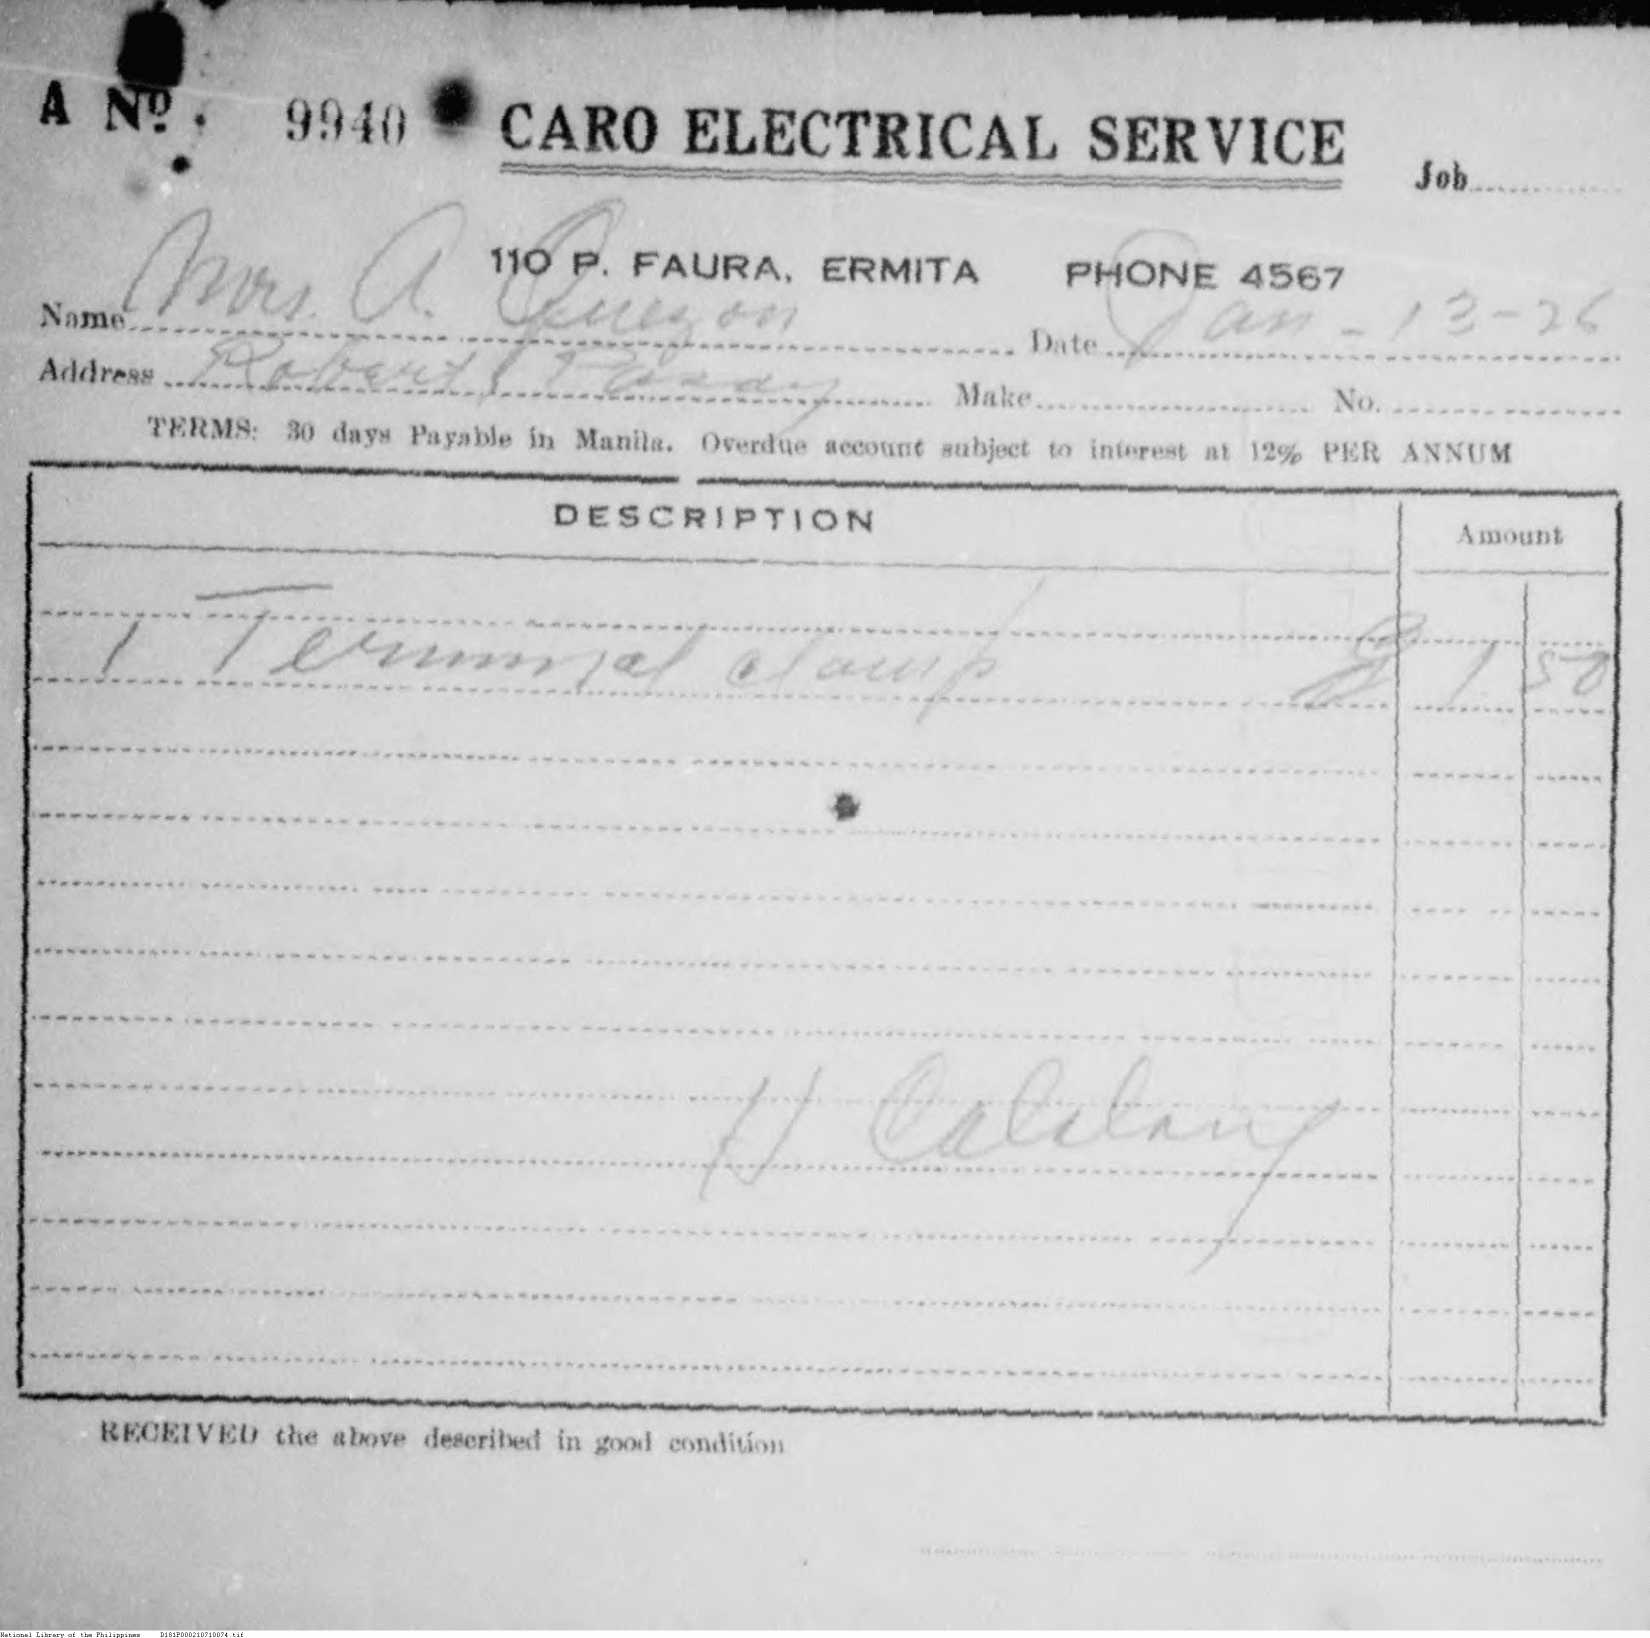 A No. 9940 CARO ELECTRICAL SERVICE
Job
110 P. FAURA, ERMITA PHONE 4567
Name Mrs. A. Quezon Date Jan - 13 - 26
Address Roberts Pasay Make No.
TERMS: 30 days Payable in Manila. Overdue account subject to interest at 12% PER ANNUM
DESCRIPTION Amount
1 Terminal clamp 1 50
H
RECEIVED the above described in good condition
National Library of the Philippines D181P000210710074.tif